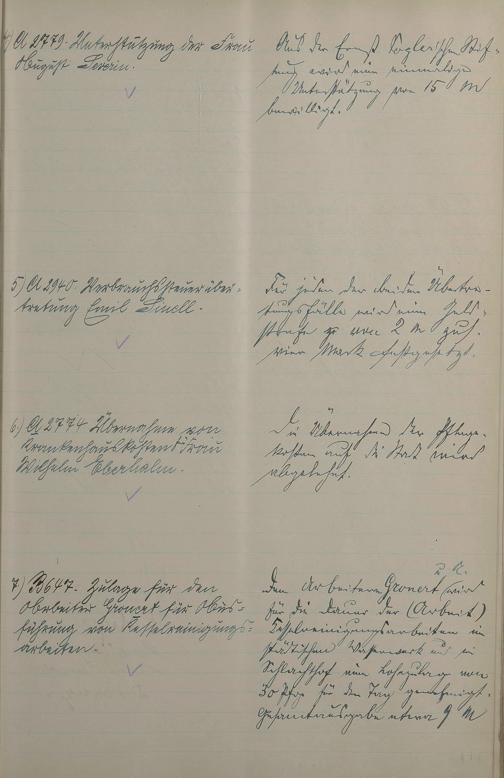 4) A 2779. Unterstützung der Frau
August Severin.
Aus der Ernst Vogler'schen Stif-
tung wird eine einmalige
Unterstützung von 15 M
bewilligt.
5) A 2940. Verbrauchssteuerüber-
tretung Emil Linell.
Für jeden der beiden Übertre-
tungsfälle wird eine Geld-
strafe von 2 M zus.
vier Mark festgesetzt.
6) A 2774 Übernahme von
Krankenhauskosten Frau
Wilhelm Eberhalm.
Die Übernahme der Pflege-
kosten auf die Stadt wird
abgelehnt.
7) B 647. Zulage für den
Arbeiter Gronert für Aus-
führung von Kesselreinigungs-
arbeiten.
Dem Arbeiter Gronert u. A. wird
für die Dauer der (Arbeit)
Kesselreinigungsarbeiten im
städtischen Wasserwerk und im
Schlachthof eine Lohnzulage von
30 Pfg. für den Tag genehmigt.
Gesamtausgabe etwa 9 M